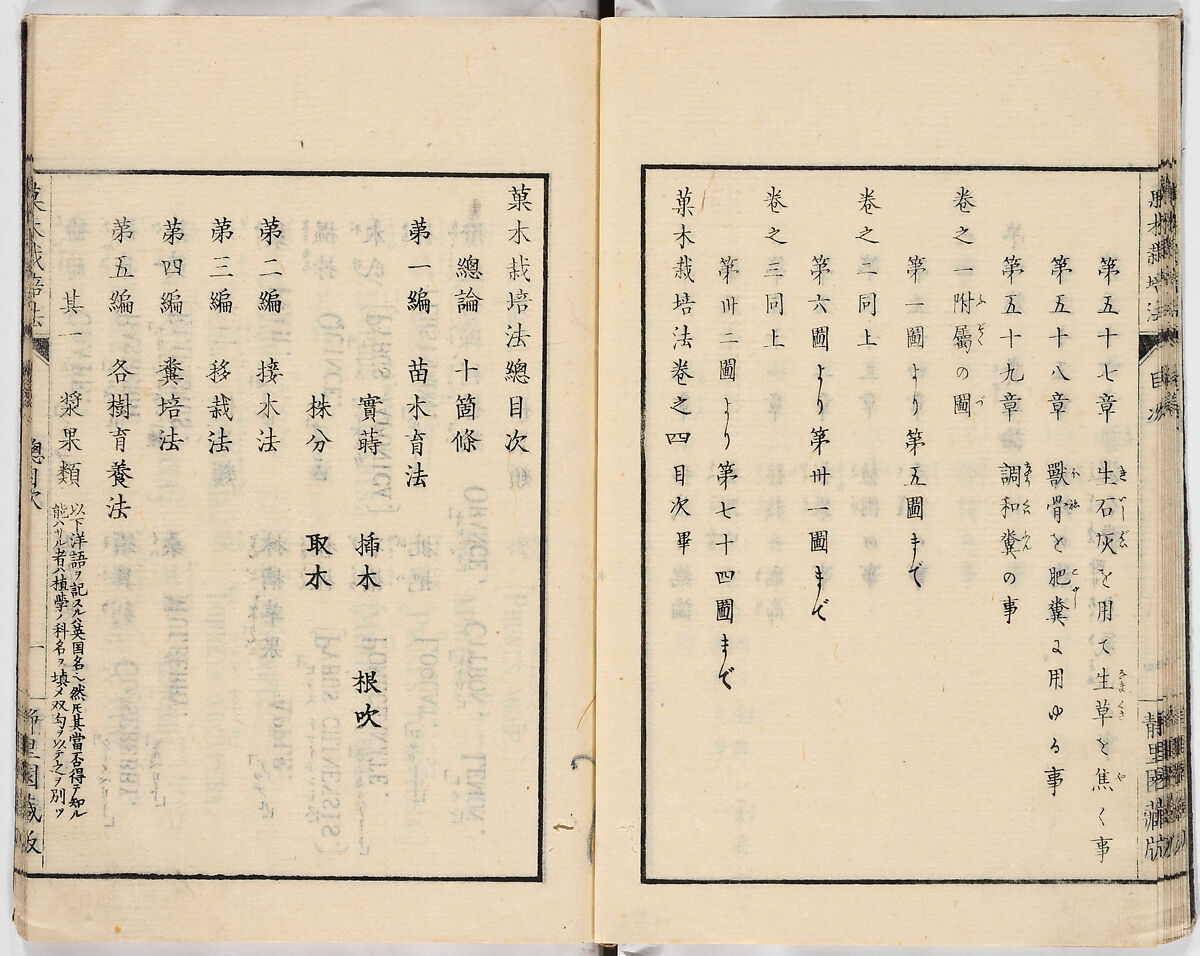 第五十七章 生石灰を用て生草を焦く事
第五十八章 獸骨を肥糞に用ゆる事
第五十九章 調和糞の事
卷之一附屬の圖
第一圖より第五圖まで
卷之二同上
第六圖より第卅一圖まで
卷之三同上
第卅二圖より第七十四圖まで
菓木栽培法卷之四目次畢
菓木栽培法總目次
總論 十箇條
第一編 苗木育法
實蒔 插木 根吹
株分 取木
第二編 接木法
第三編 移栽法
第四編 糞培法
第五編 各樹育養法
其一 漿果類
以下洋語ヲ記スルハ英国名也然㆑其當否得テ知ル
能ハサル者ハ植學ノ科名ヲ填メ双勾ヲ以テ之ヲ別ツ
菓木栽培法
總目次
一
静里園藏版